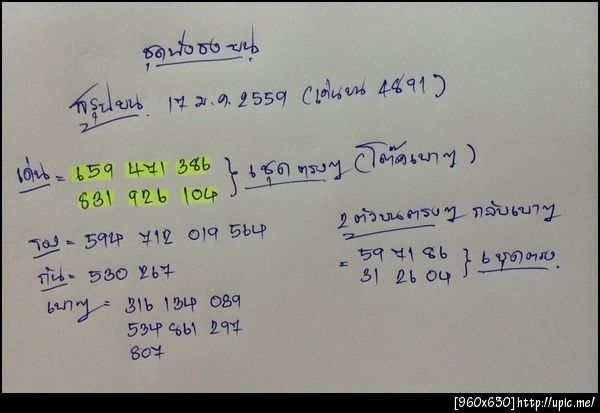 ชุดฟังธง บน
สรุปบน 17 ม.ค. 2559 (เด่นบน 4891)
เด่น = 659 471 386 } 6 ชุดตรงๆ (โต๊ดเบาๆ)
831 926 104
รอง = 594 712 019 564
กัน = 530 267
เบาๆ = 316 134 089
534 861 297
807
2 ตัวบนตรงๆ กลับเบาๆ
= 59 71 86 } 6 ชุดตรง
31 26 04
[960x630]http://upic.me/